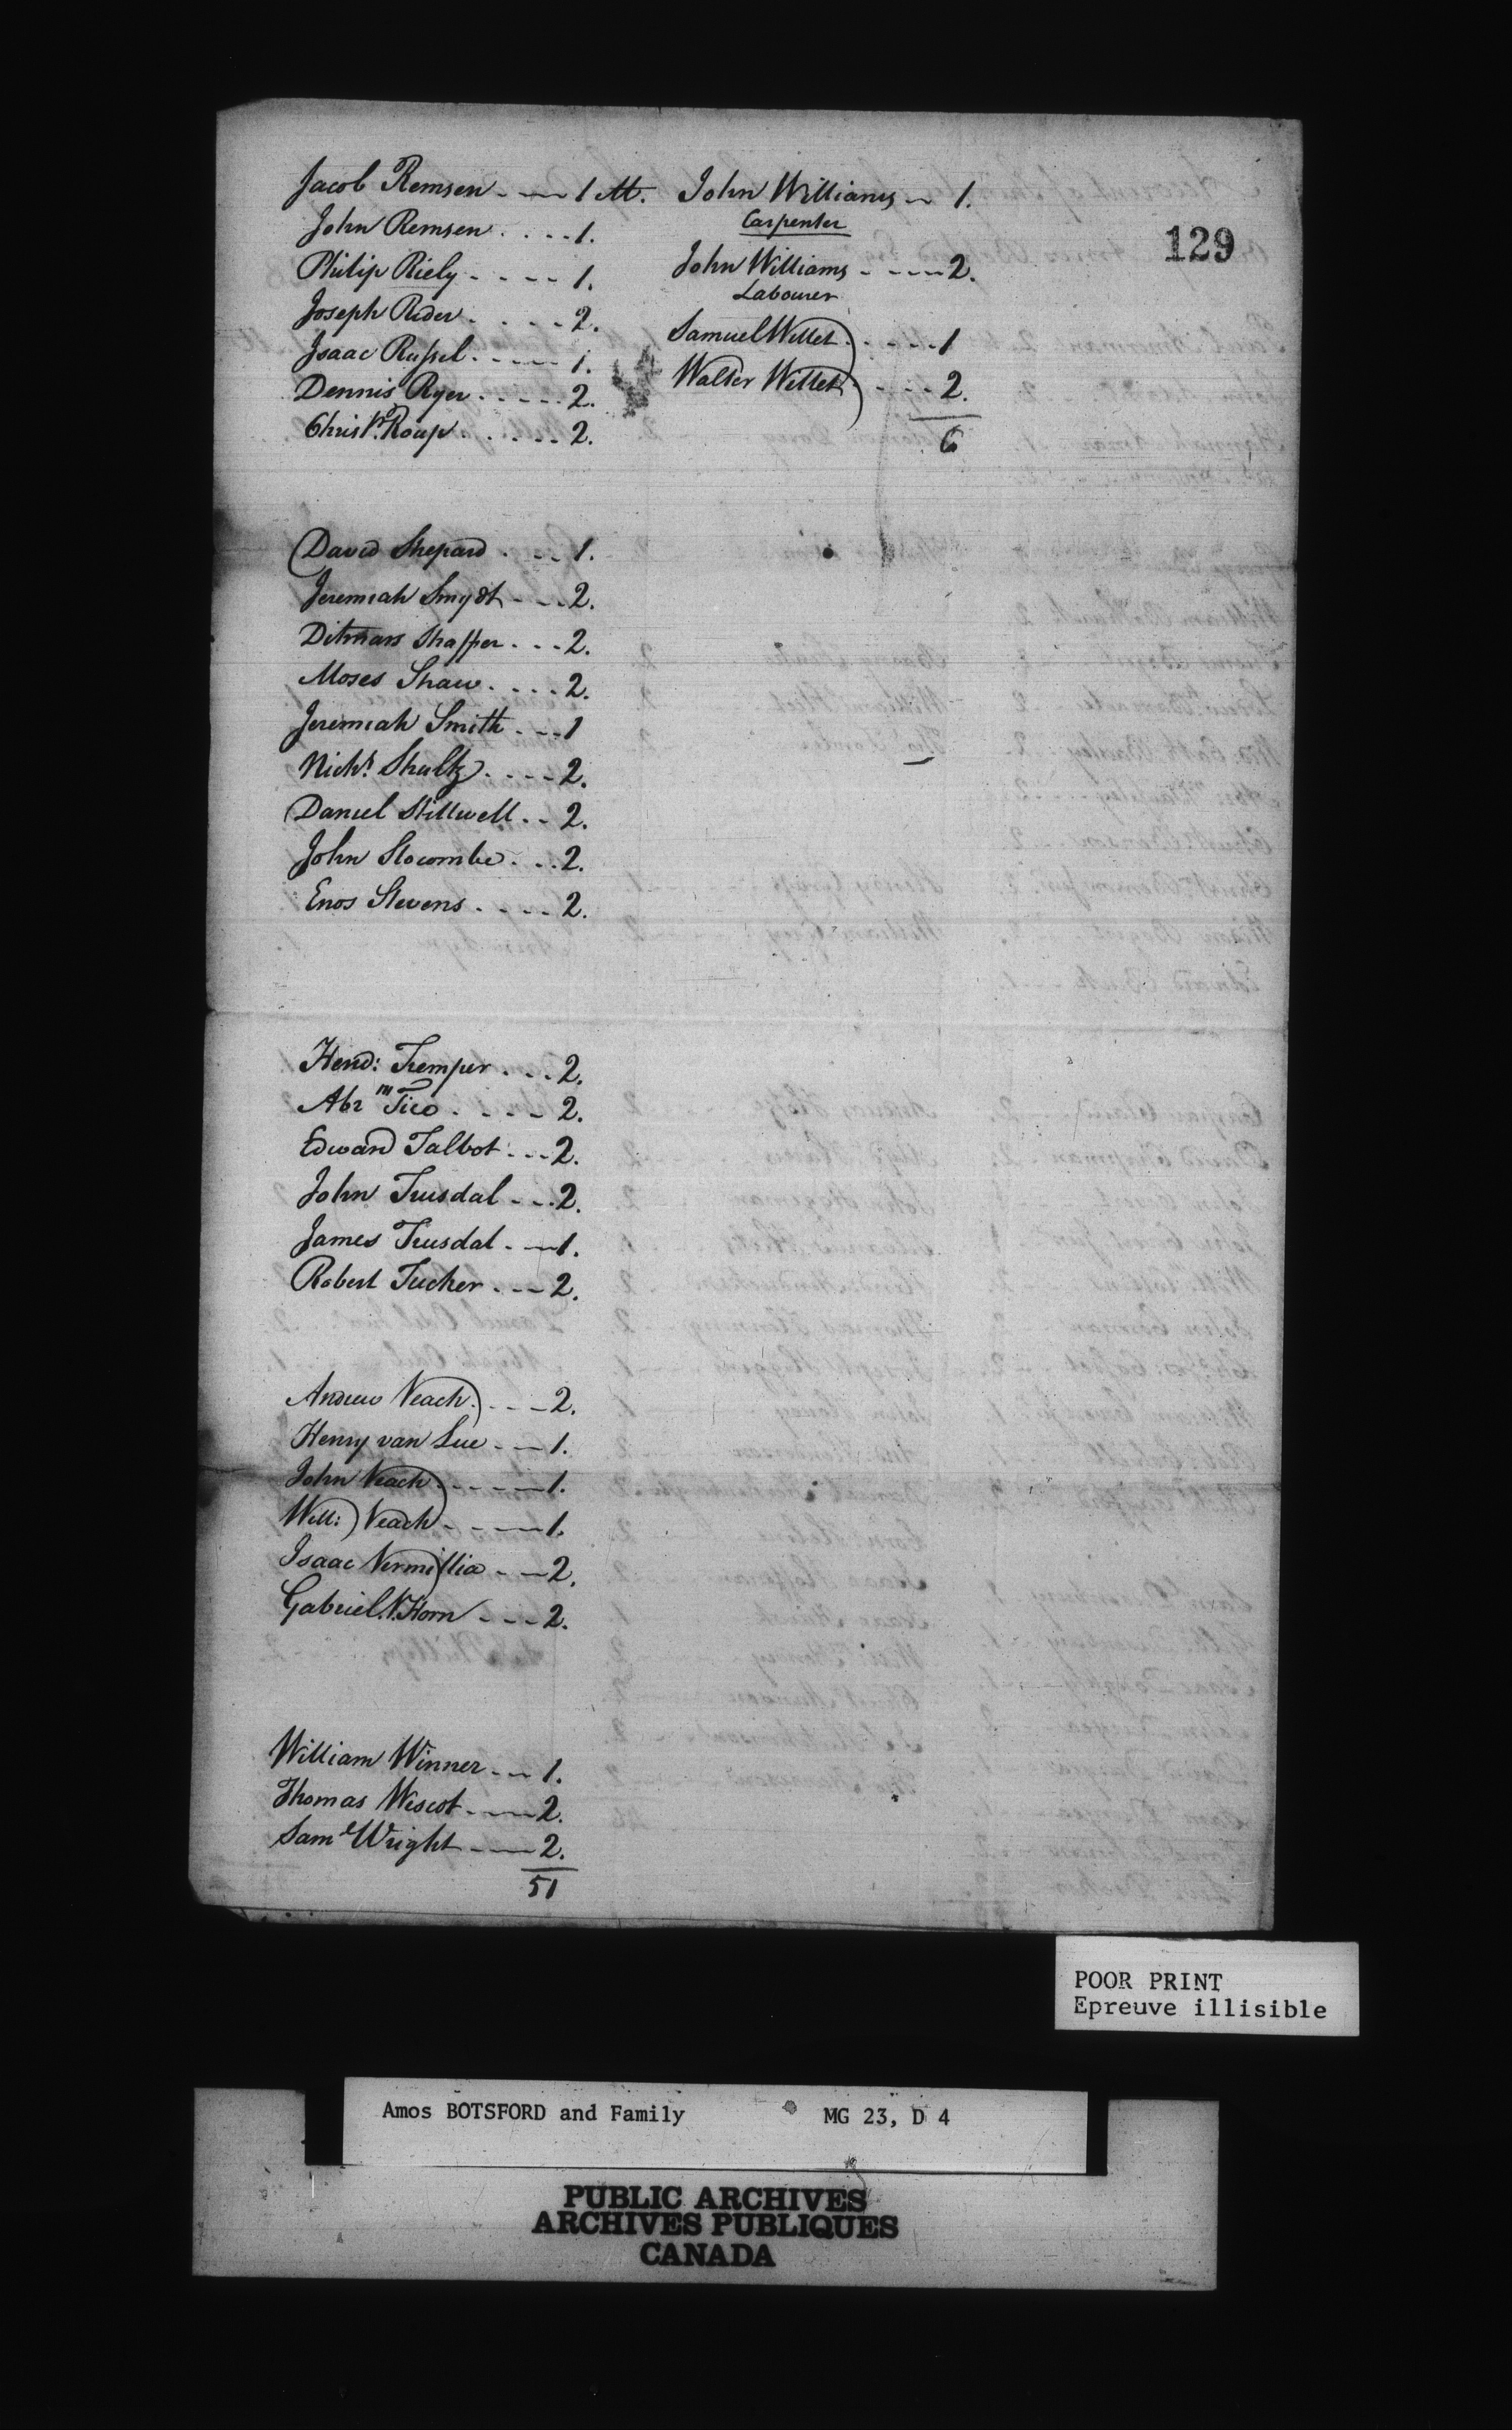 Jacob Remsen - - 1 M.
John Remsen . . . . 1.
Philip Riely - - - - 1.
Joseph Rider . . . . 2.
Isaac Russel . - - - 1.
Dennis Ryer . . . . . 2.
Christ.r Roup . . . . . 2.
David Shepard . . . . 1.
Jeremiah Smydt - - - 2.
Ditmars Shaffer . . . 2.
Moses Shaw . . . . 2.
Jeremiah Smith . . - 1
Nich.s Shultz . . . . 2.
Daniel Stillwell . . 2.
John Slocombe . . . 2.
Enos Stevens . . . . 2.
Hend: Tremper . . . 2.
Abr.m Tico . . . . 2.
Edward Talbot . . . 2.
John Trusdal - - . 2.
James Trusdal . - 1.
Robert Tucker . . - 2.
Andrew Veach . . . - 2.
Henry van Sue - - 1.
John Veach . - - - - 1.
Will: Veach - - - - 1.
Isaac Vermillia - - 2.
Gabriel V. Horn - - - 2.
William Winner - - 1.
Thomas Wescot - - - 2.
Sam.l Wright - - - 2.
51
John Williams - 1.
Carpenter
John Williams - - - - 2.
Labourer
Samuel Willet . . - - - 1
Walter Willet . - - - 2.
6
129
POOR PRINT
Epreuve illisible
Amos BOTSFORD and Family MG 23, D 4
PUBLIC ARCHIVES
ARCHIVES PUBLIQUES
CANADA